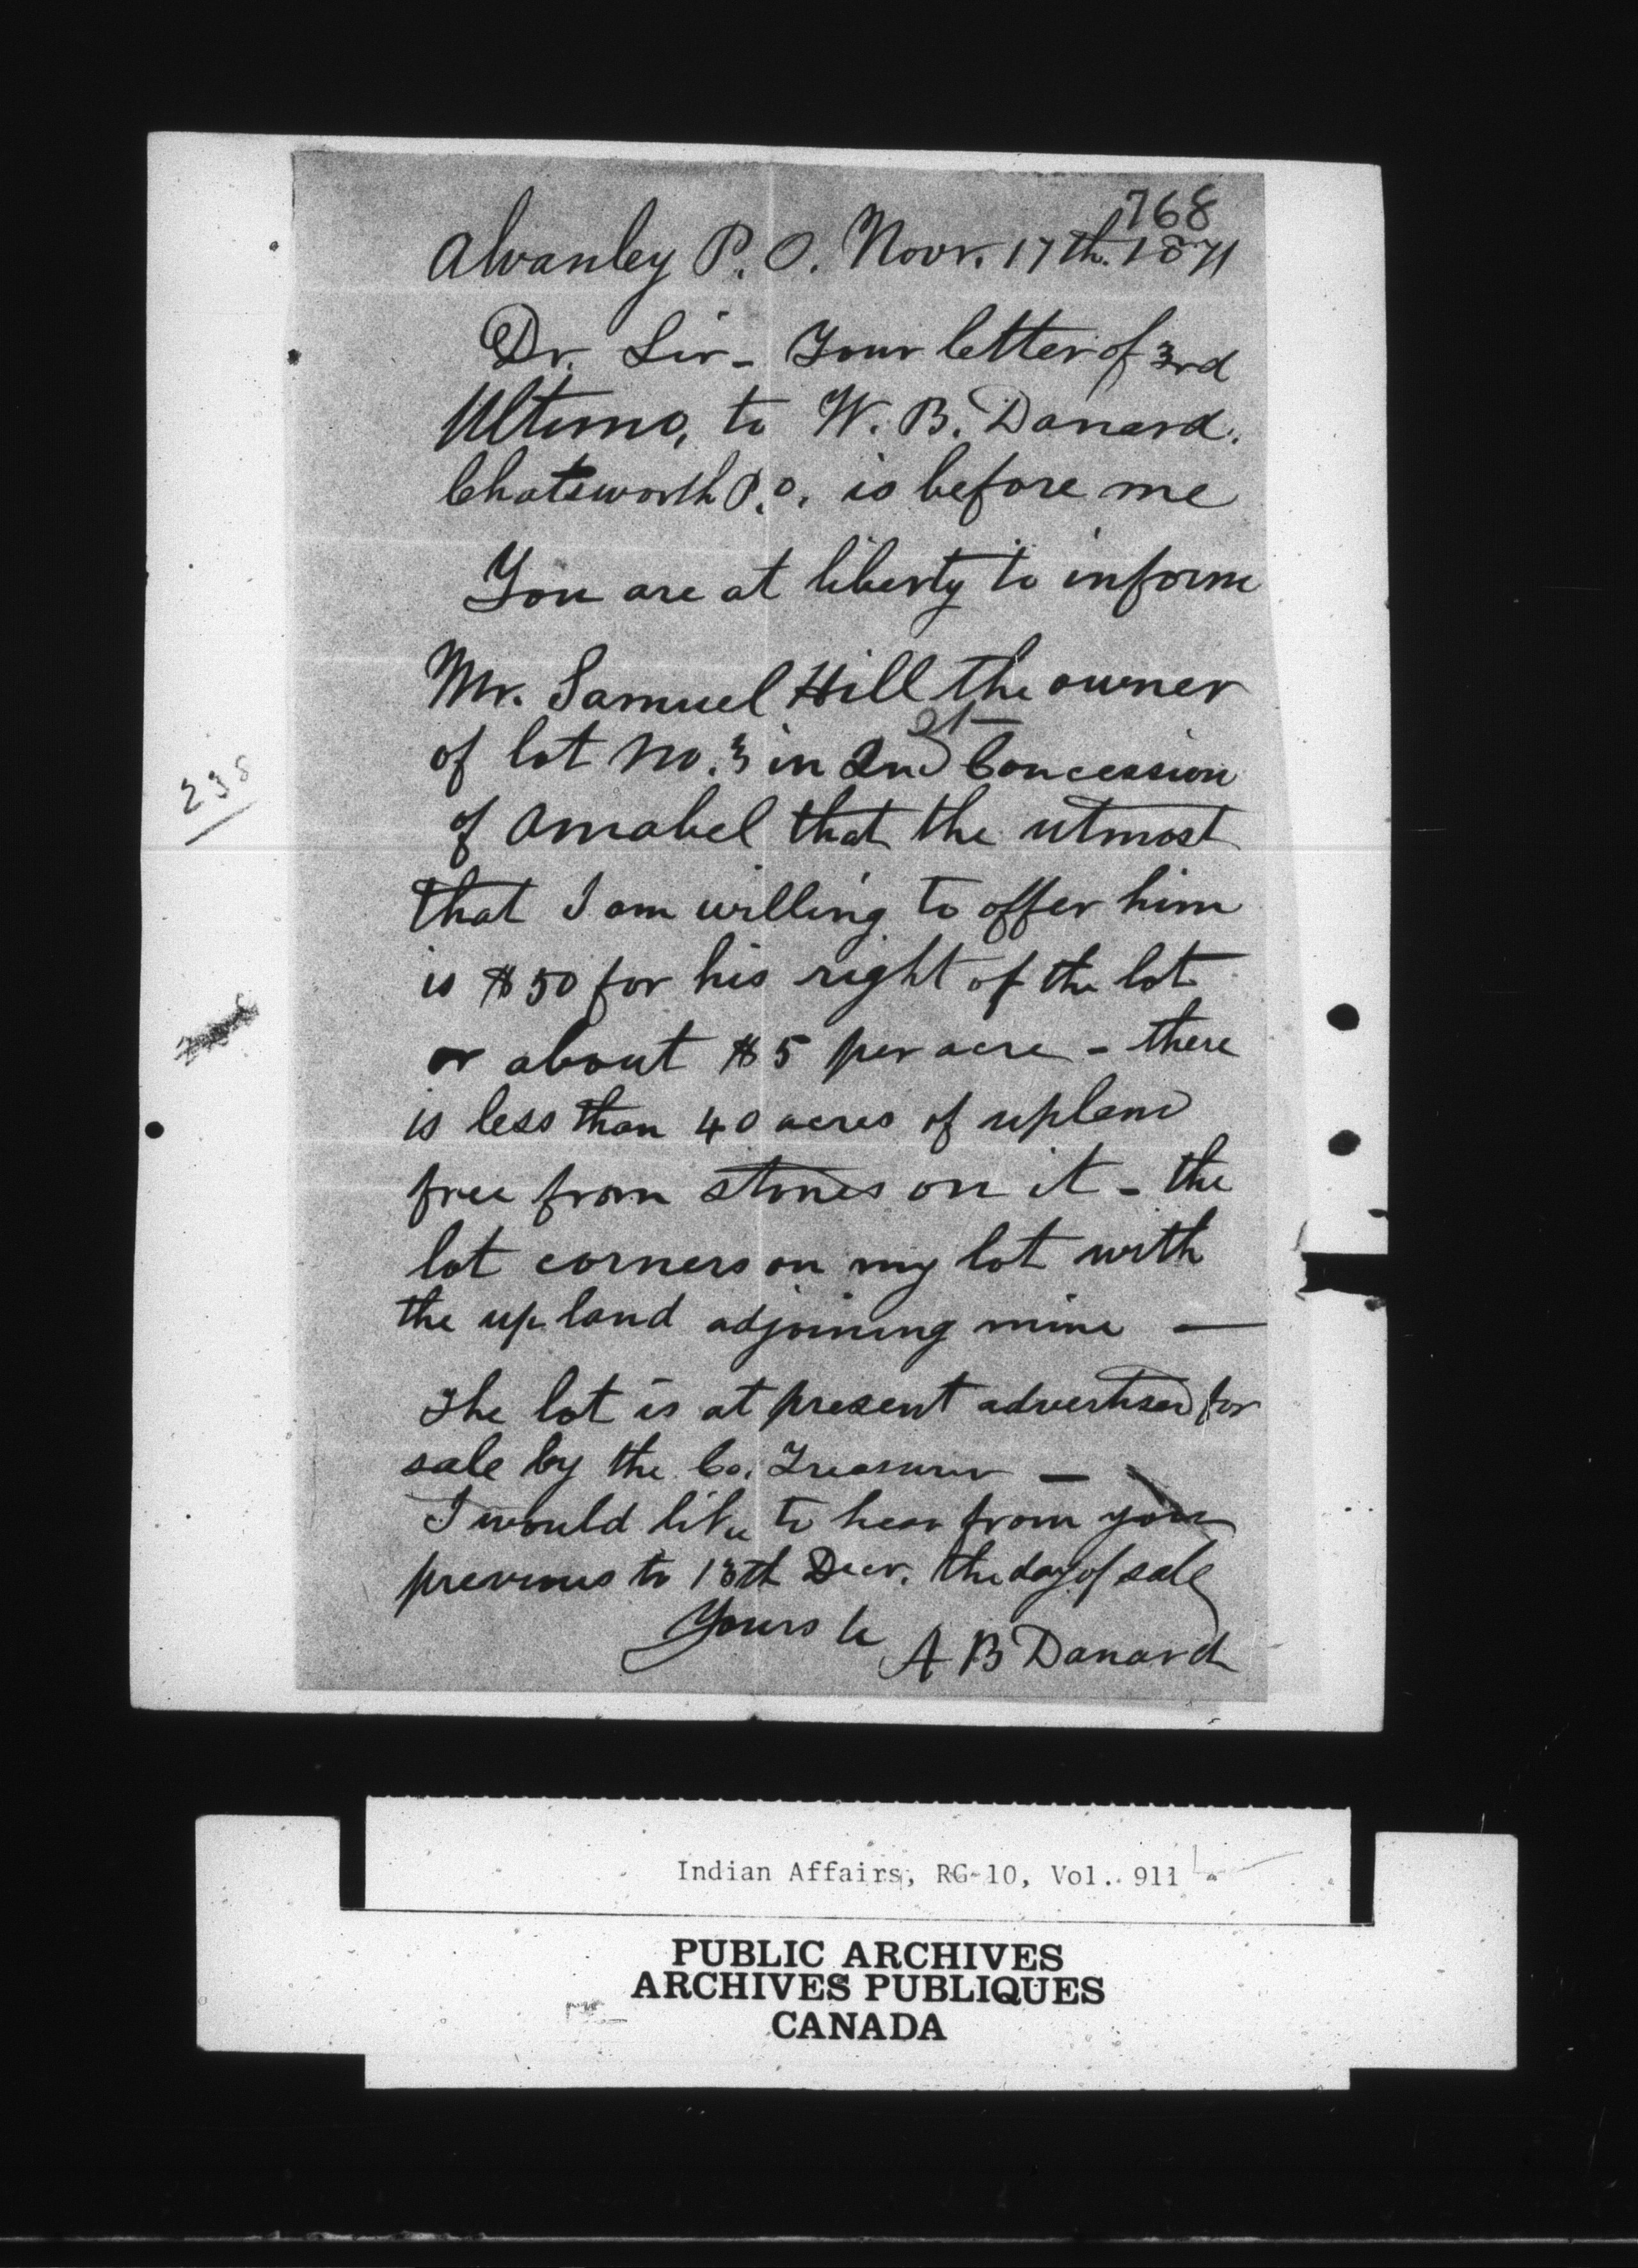 768
Alvanley P.O. Novr. 17th. 1871
Dr. Sir - Your letter of 3rd
Ultimo, to W. B. Danard.
Chatsworth P.O. is before me
You are at liberty to inform
Mr. Samuel Hill the owner
of lot No. 3 in 2nd Concession
of Amabel that the utmost
that I am willing to offer him
is $50 for his right of the lot
or about $5 per acre - there
is less than 40 acres of upland
free from stones on it - the
lot corners on my lot with
the upland adjoining mine -
The lot is at present advertised for
sale by the Co. Treasurer -
I would like to hear from you
previous to 13th Decr. the day of sale
Yours &c A B Danard
238
Indian Affairs, RG-10, Vol. 911
PUBLIC ARCHIVES
ARCHIVES PUBLIQUES
CANADA